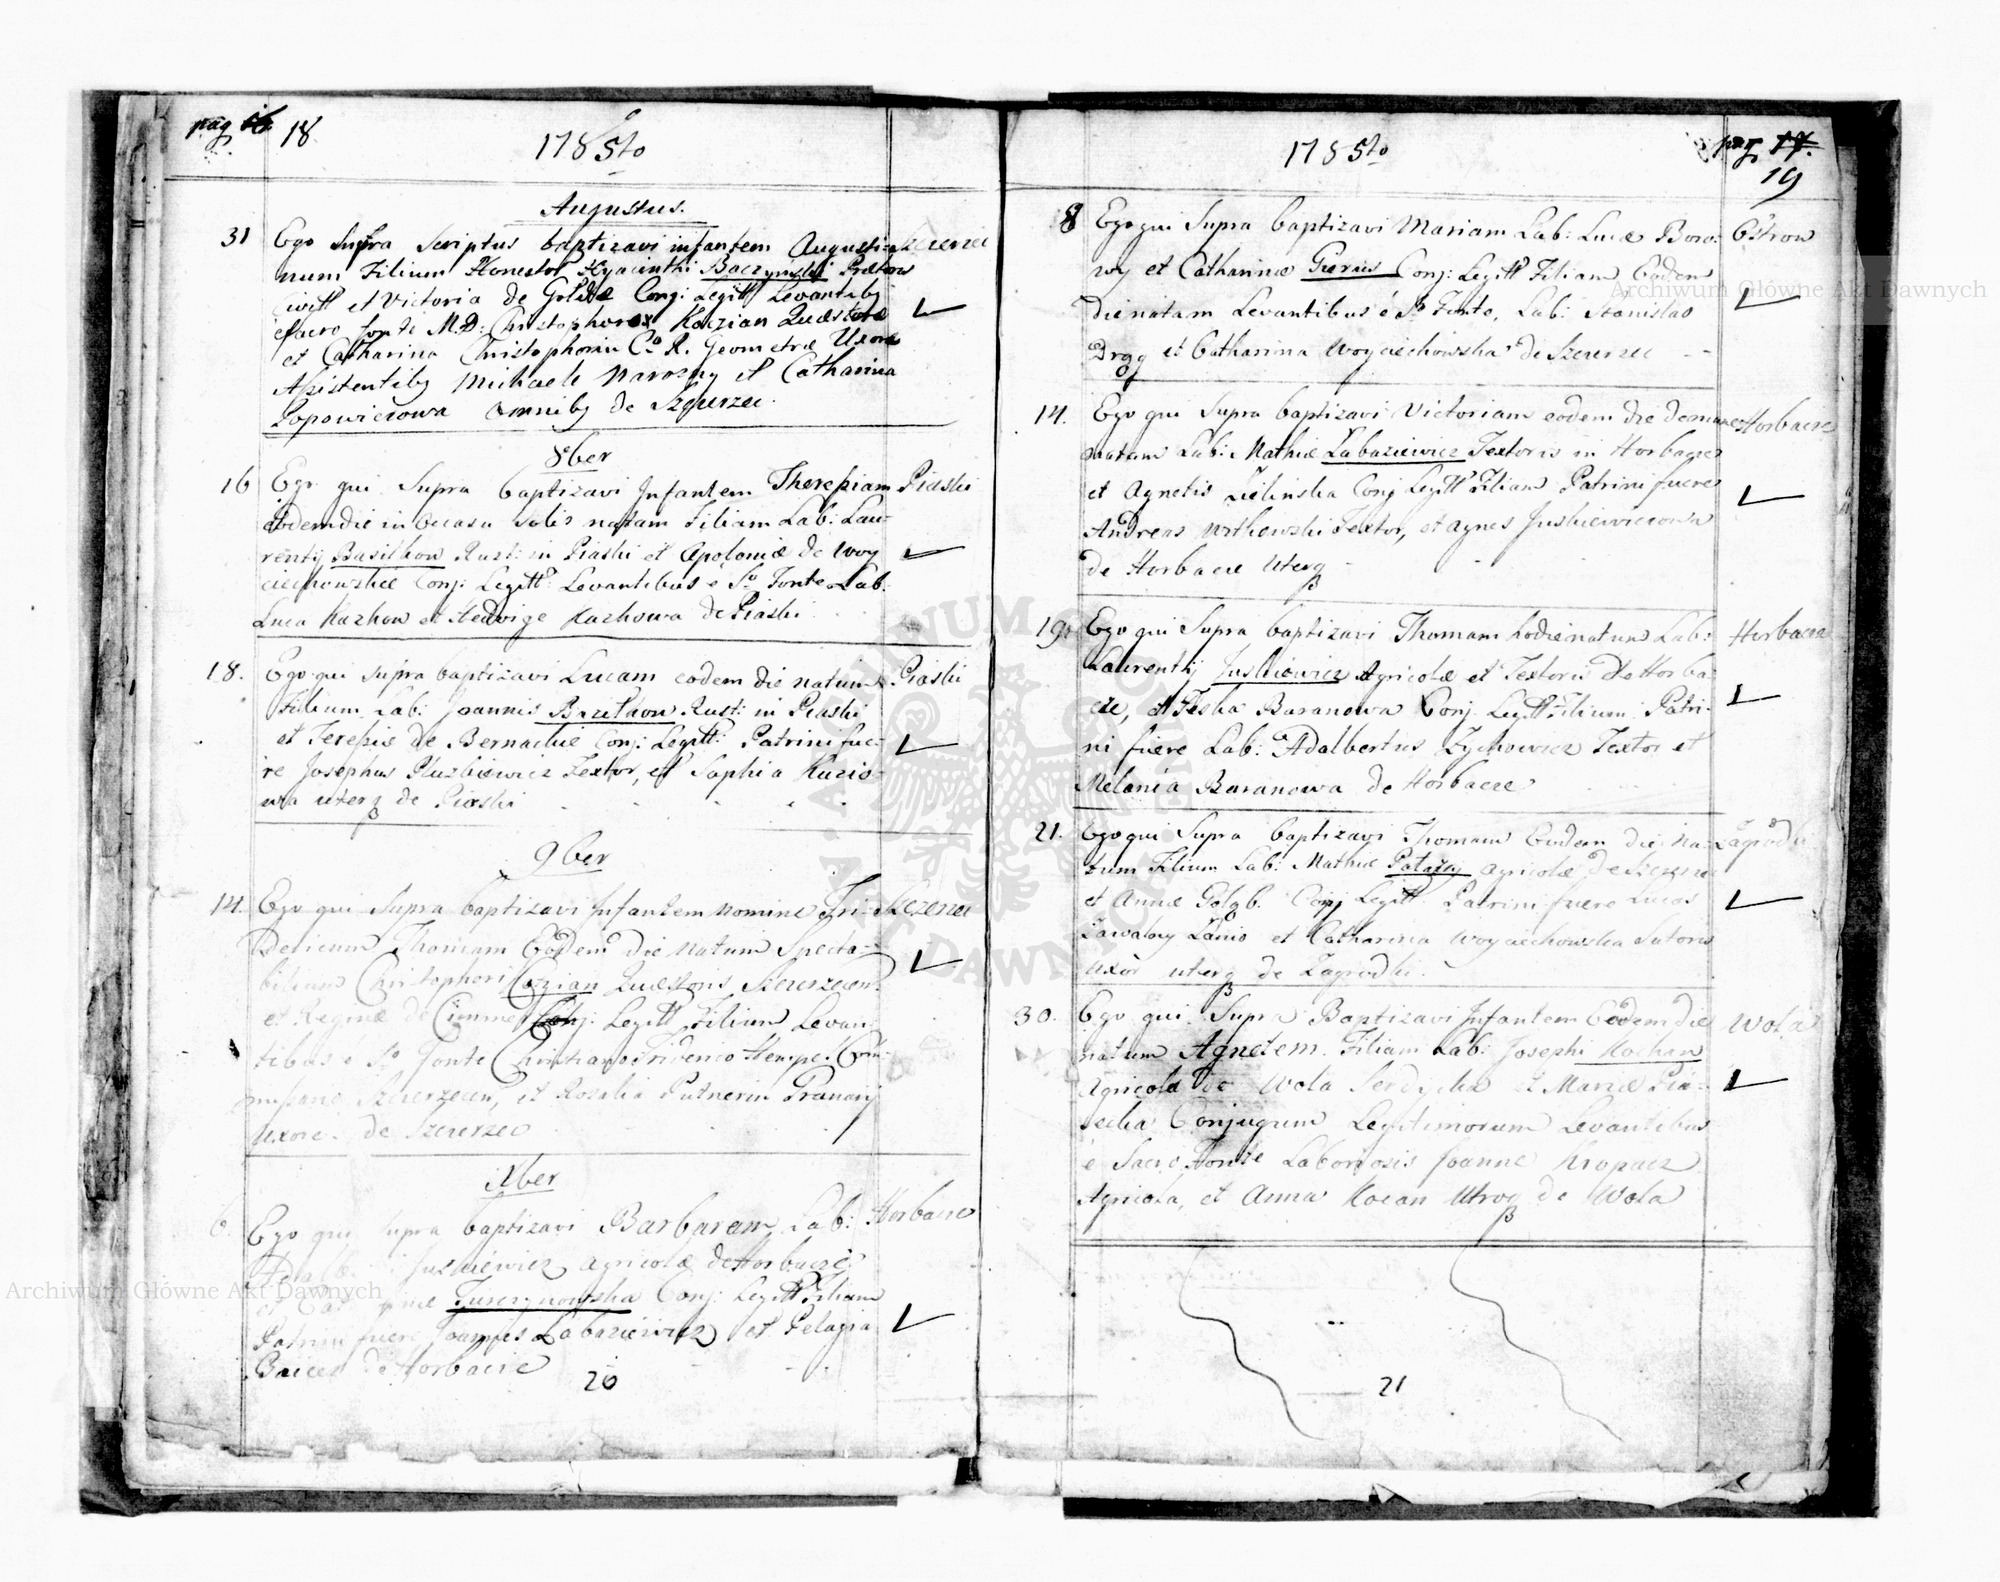 pag 18
1785to
Augustus.
31 Ego Supra Scriptus baptizavi infantem Augusti- Szczerzec
num Filium Honestor Hyacinthi Baczynski Prætoris
Civitt et Victoria de Conj: Legitt Levantibg
e sacro fonte M.D: Christophoro Kaizian Quæstore
et Catharina Christophorin C. R. Geometræ Uxore
Assistentibg Michaele et Catharina
Popowiczowa omnibg de Szczerzec.
8ber
16 Ego qui Supra baptizavi Infantem Theresiam Piaski
eodem die in occasu solis natam Filiam Lab: Lau-
rentij Rust: in Piaski et Apoloniæ de Woy
ciechowskie Conj: Legitt: Levantibus e So Fonte Lab:
Luca Kazkow et Hedvige Kazkowa de Piaski
18. Ego qui supra baptizavi Lucam eodem die natum Piaski
Filium Lab: Joannis Rust: in Piaski
et Teresie de Conj: Legitt: Patrini fue-
re Josephus Textor, et Sophia
wa uterq de Piaski
9ber
14. Ego qui Supra baptizavi Infantem nomine Fri- Szczerzec
dericum Thomam Eodem die natum Specta-
bilium Christophori Cazian Quæstoris Szczerzecen:
et Reginæ de Conj: Legitt Filium Levan-
tibus e So Fonte Christiano Friderico Hempel Com-
missario Szczerzecen, et Rosalia Putnerin Granarij
Uxore. de Szczerzec
Xber
6. Ego qui supra baptizavi Barbaram Lab: Horbacze
Juskiewicz agricolæ de Horbacze
et Conj: Legitt Filiam
Patrini fuere Joannes Labaziewicz et Pelagia
de Horbacze
20
1785to
pag 17.
19
8 Ego qui Supra baptizavi Mariam Lab: Lucæ Boro- Ostrow
wy et Catharinæ Conj: Legitt Filiam Eodem
die natam Levantibus e So Fonte, Lab: Stanislao
et Catharina Woyciechowska de Szczerzec
14. Ego qui Supra baptizavi Victoriam eodem die de mane Horbacze
natam Lab: Mathiæ Labaziewicz Textoris in Horbacze
et Agnetis Zielinska Conj Legitt Filiam Patrini fuere
Andreas Textor, et Agnes Juskiewiczowa
de Horbacze Uterq
19. Ego qui Supra baptizavi Thomam hodie natum Lab: Horbacze
Laurentij Juskiewicz Agricolæ et Textoris de Horba-
cze, et Tesha Baranowa Conj Legitt Filium Patri-
ni fuere Lab: Adalbertus Zychowicz Textor et
Melania Baranowa de Horbacze
21. Ego qui Supra baptizavi Thomam Eodem die na- Zagrodki
tum Filium Lab: Mathiæ agricolæ de Szczerzec
et Annæ Conj Legitt Patrini fuere Lucas
Lanio et Catharina Woyciechowska Sutoris
Uxor uterq de Zagrodki.
30. Ego qui Supra Baptizavi Infantem Eodem die Wola
natum Agnetem. Filiam Lab: Josephi Kochan
Agricolæ de Wola Serdycka et Mariæ Pia-
secka Conjugum Legitimorum Levantibus
e Sacro Fonte Laboriosis Joanne Kropacz
Agricola, et Anna Kocan Utroq de Wola
21
Archiwum Główne Akt Dawnych
Archiwum Główne Akt Dawnych